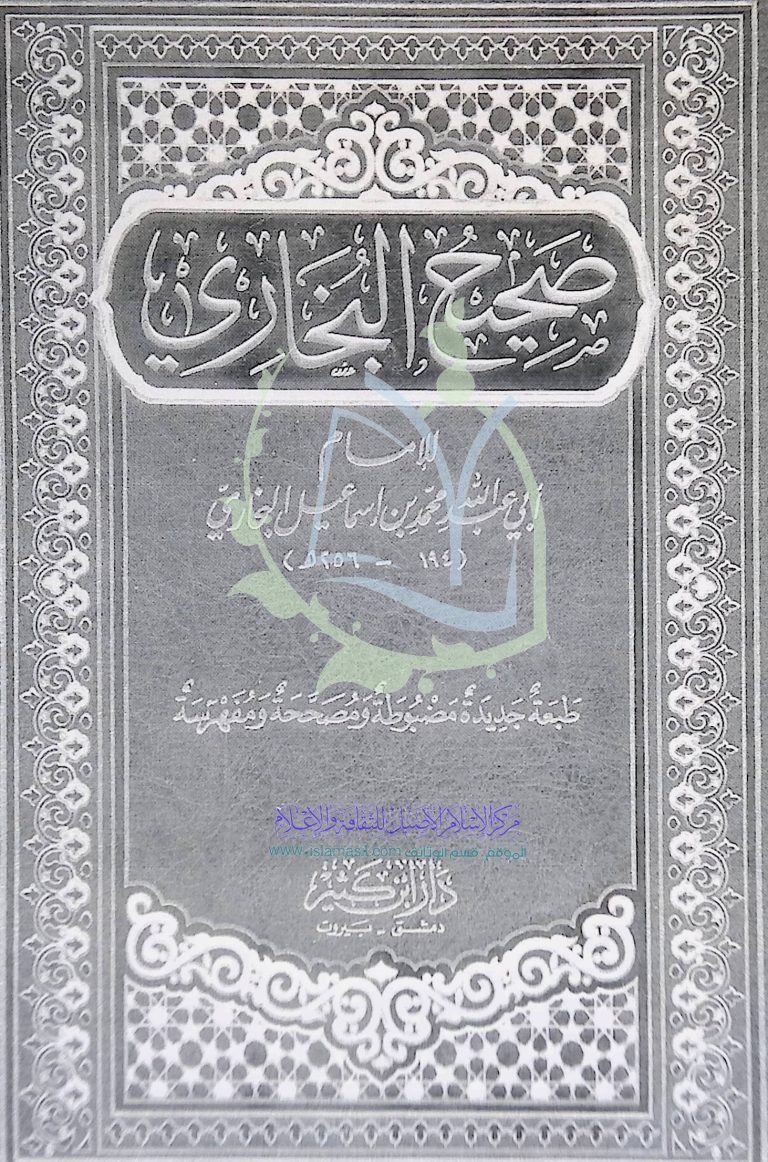 صَحِيحُ البُخَارِي
للإمام
أبي عبد الله محمد بن اسماعيل البخاري
(١٩٤ - ٢٥٦ه)
طَبعَةٌ جَدِيدَةٌ مَضْبُوطَةٌ وَمُصَحَّحَةٌ وَمُفَهْرَسَةٌ
مركز الإسلام الأصيل للثقافة والإعلام
الموقع قسم الوثائق www.islamasil.com
دار ابن كثير
دمشق - بيروت